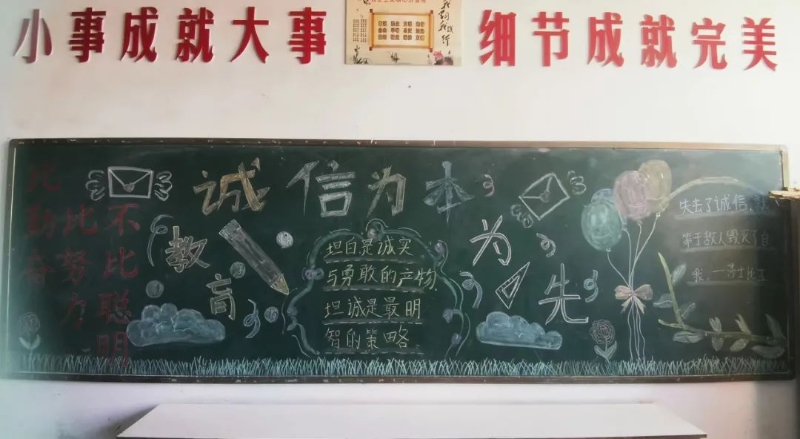 小事成就大事
细节成就完美
诚信为本
教育
为先
不比聪明
比努力
比勤奋
坦白是诚实
与勇敢的产物,
坦诚是最明
智的策略
失去了诚信,
等于敌人毁灭了自
莎士比亚